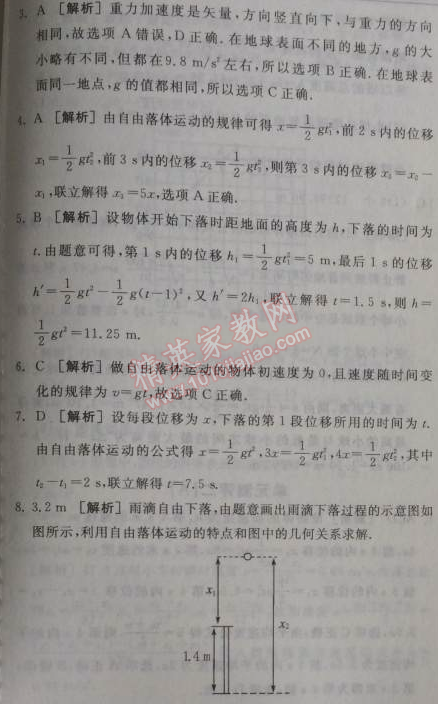 3. A [解析] 重力加速度是矢量,方向竖直向下,与重力的方向
相同,故选项 A 错误,D 正确.在地球表面不同的地方,g 的大
小略有不同,但都在 9.8 m/s² 左右,所以选项 B 正确.在地球表
面同一地点,g 的值都相同,所以选项 C 正确.
4. A [解析] 由自由落体运动的规律可得 x=1/2 gt₁²,前 2 s 内的位移
x₁=1/2 gt₂²,前 3 s 内的位移 x₂=1/2 gt₃²,则第 3 s 内的位移 x₃=x₂-
x₁,联立解得 x₃=5x,选项 A 正确.
5. B [解析] 设物体开始下落时距地面的高度为 h,下落的时间为
t.由题意可得,第 1 s 内的位移 h₁=1/2 gt₁²=5 m,最后 1 s 的位移
h′=1/2 gt²-1/2 g(t-1)²,又 h′=2h₁,联立解得 t=1.5 s,则 h=
1/2 gt²=11.25 m.
6. C [解析] 做自由落体运动的物体初速度为 0,且速度随时间变
化的规律为 v=gt,故选项 C 正确.
7. D [解析] 设每段位移为 x,下落的第 1 段位移所用的时间为 t.
由自由落体运动的公式得 x=1/2 gt²,3x=1/2 gt₁²,4x=1/2 gt₂²,其中
t₂-t₁=2 s,联立解得 t=7.5 s.
8. 3.2 m [解析] 雨滴自由下落,由题意画出雨滴下落过程的示意图如
图所示,利用自由落体运动的特点和图中的几何关系求解.
x₁
x₂
1.4 m
精英家教网